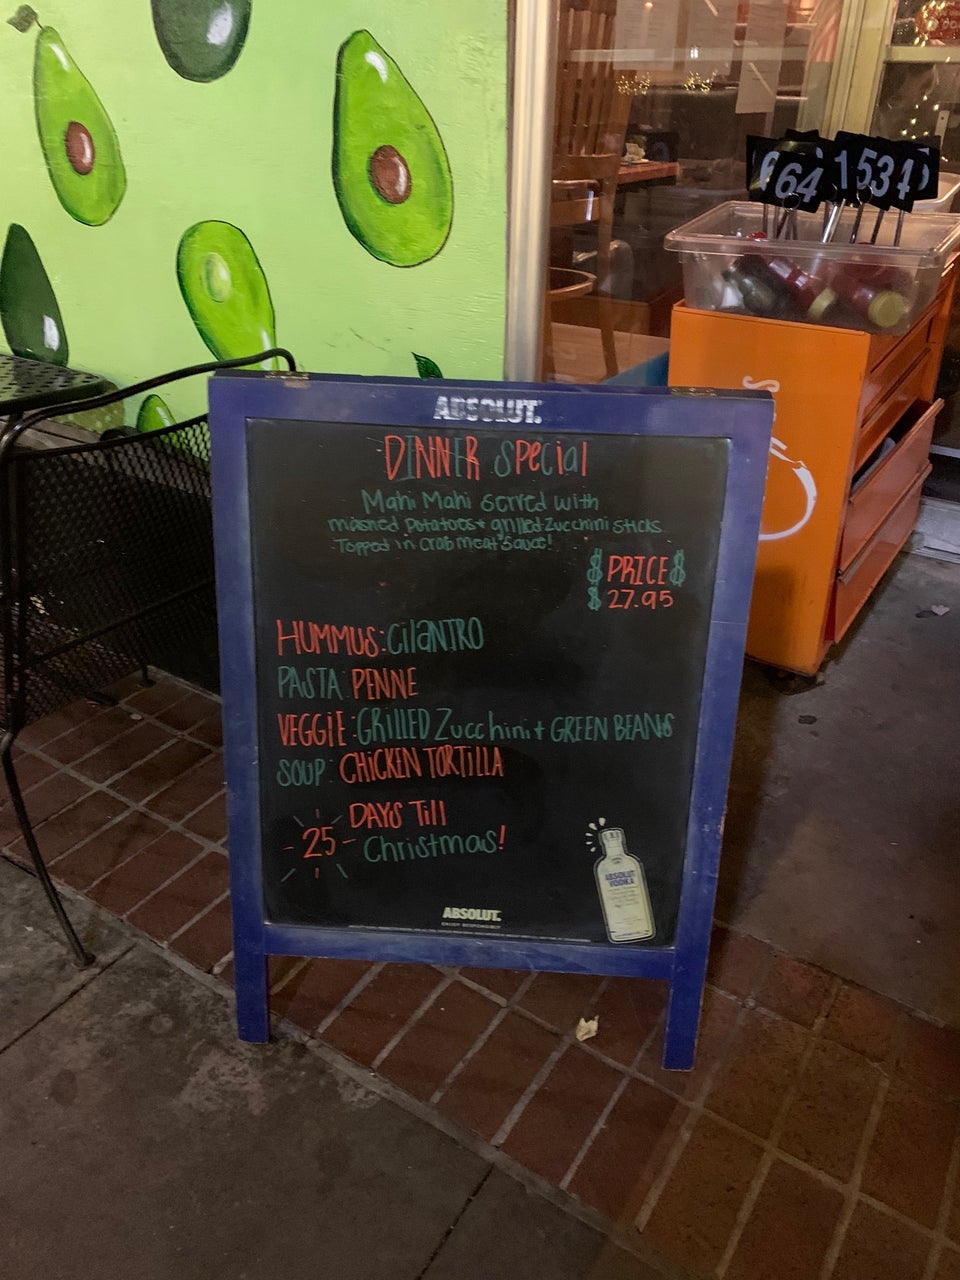 64
153
ABSOLUT.
DINNER Special
Mahi Mahi Served with
mashed potatoes + grilled Zucchini Sticks
Topped in Crab meat Sauce!
$ PRICE $
$ 27.95
HUMMUS: CilaNTRO
PASTA: PENNE
VEGGiE: GRILLED Zucchini + GREEN BEANS
SOUP: CHiCKEN TORTiLLA
DAYS Till
- 25 -
Christmas!
ABSOLUT
VODKA
ABSOLUT.
ENJOY RESPONSIBLY